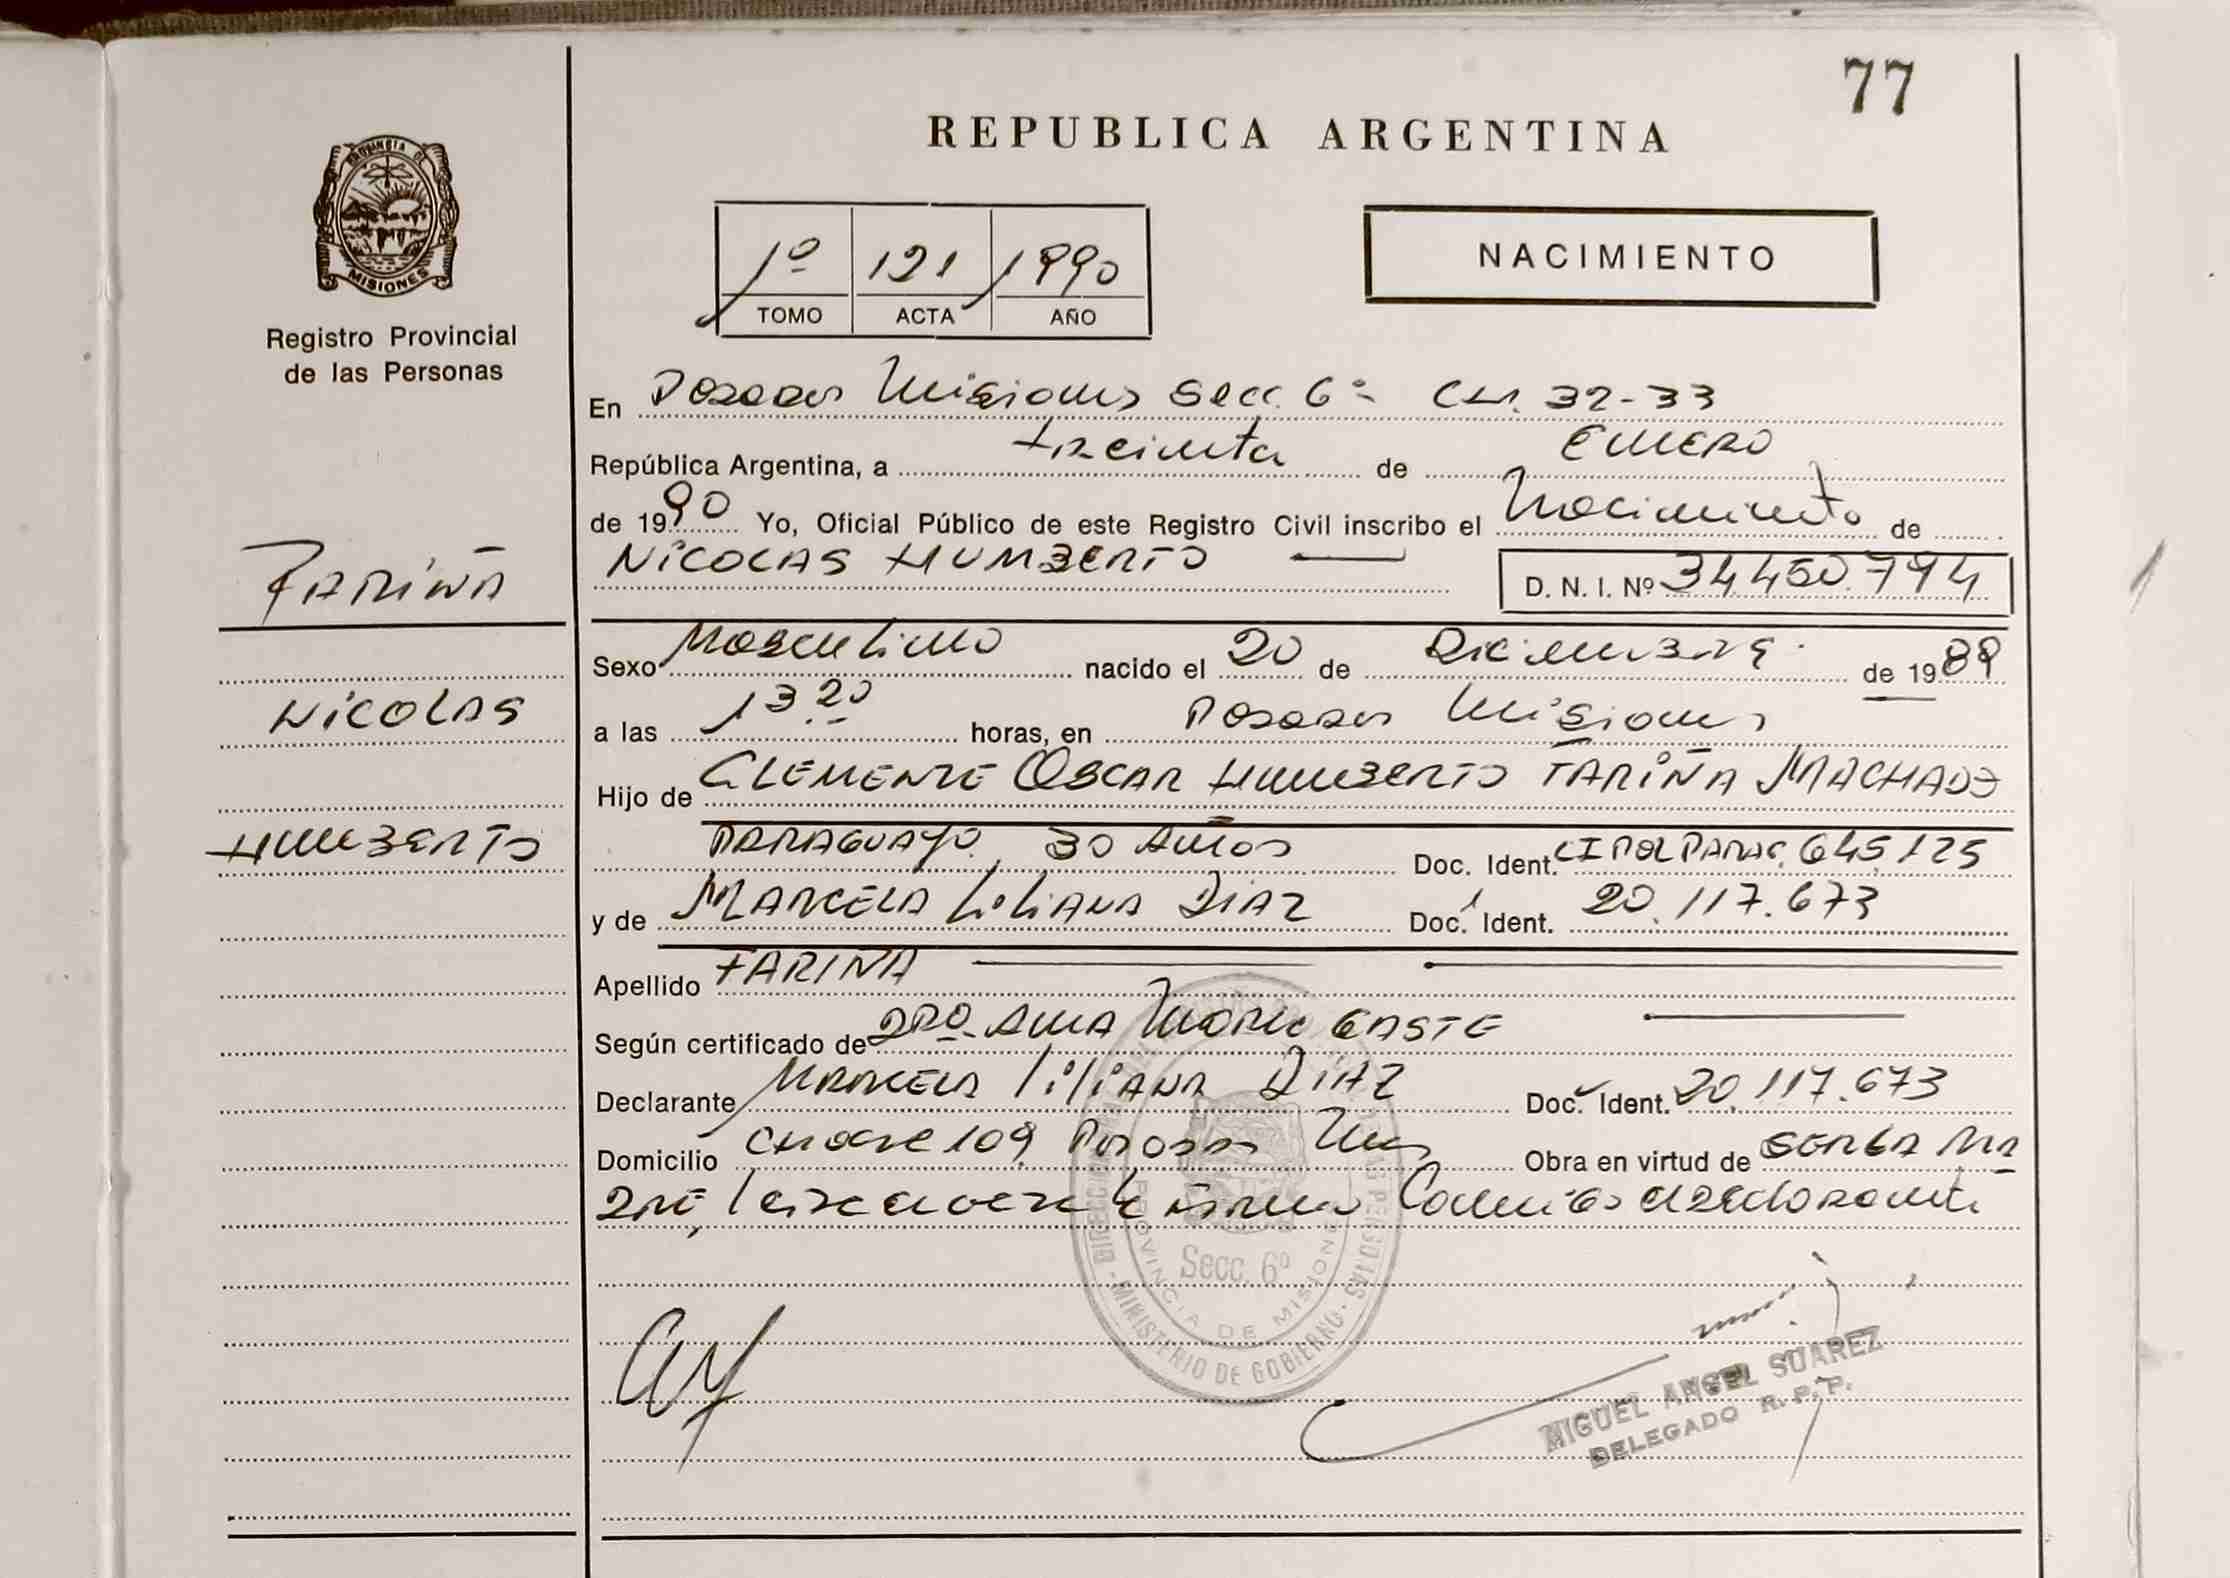 77
REPUBLICA ARGENTINA
PROVINCIA DE
MISIONES
Registro Provincial
de las Personas
1º 121 1990
TOMO ACTA AÑO
NACIMIENTO
En Posadas Misiones Secc. 6ª CH. 32-33
República Argentina, a treinta de ENERO
de 1990 Yo, Oficial Público de este Registro Civil inscribo el Nacimiento de
NICOLAS HUMBERTO
D. N. I. Nº 34.450.794
FARIÑA
NICOLAS
HUMBERTO
Sexo Masculino nacido el 20 de Diciembre de 1989
a las 13 20 horas, en Posadas Misiones
Hijo de CLEMENTE OSCAR HUMBERTO FARIÑA MACHADO
PARAGUAYO 30 AÑOS Doc. Ident. CI POL PARAG. 645.125
y de MARCELA LILIANA DIAZ Doc. Ident. 20.117.673
Apellido FARIÑA
Según certificado de DRA. ANA MARIA
Declarante MARCELA LILIANA DIAZ Doc. Ident. 20.117.673
Domicilio 109 Posadas Obra en virtud de SER LA MA
DRE,
Secc. 6º
PROVINCIA DE MISIONES
MINISTERIO DE GOBIERNO
MIGUEL ANGEL SUAREZ
DELEGADO R. P. P.